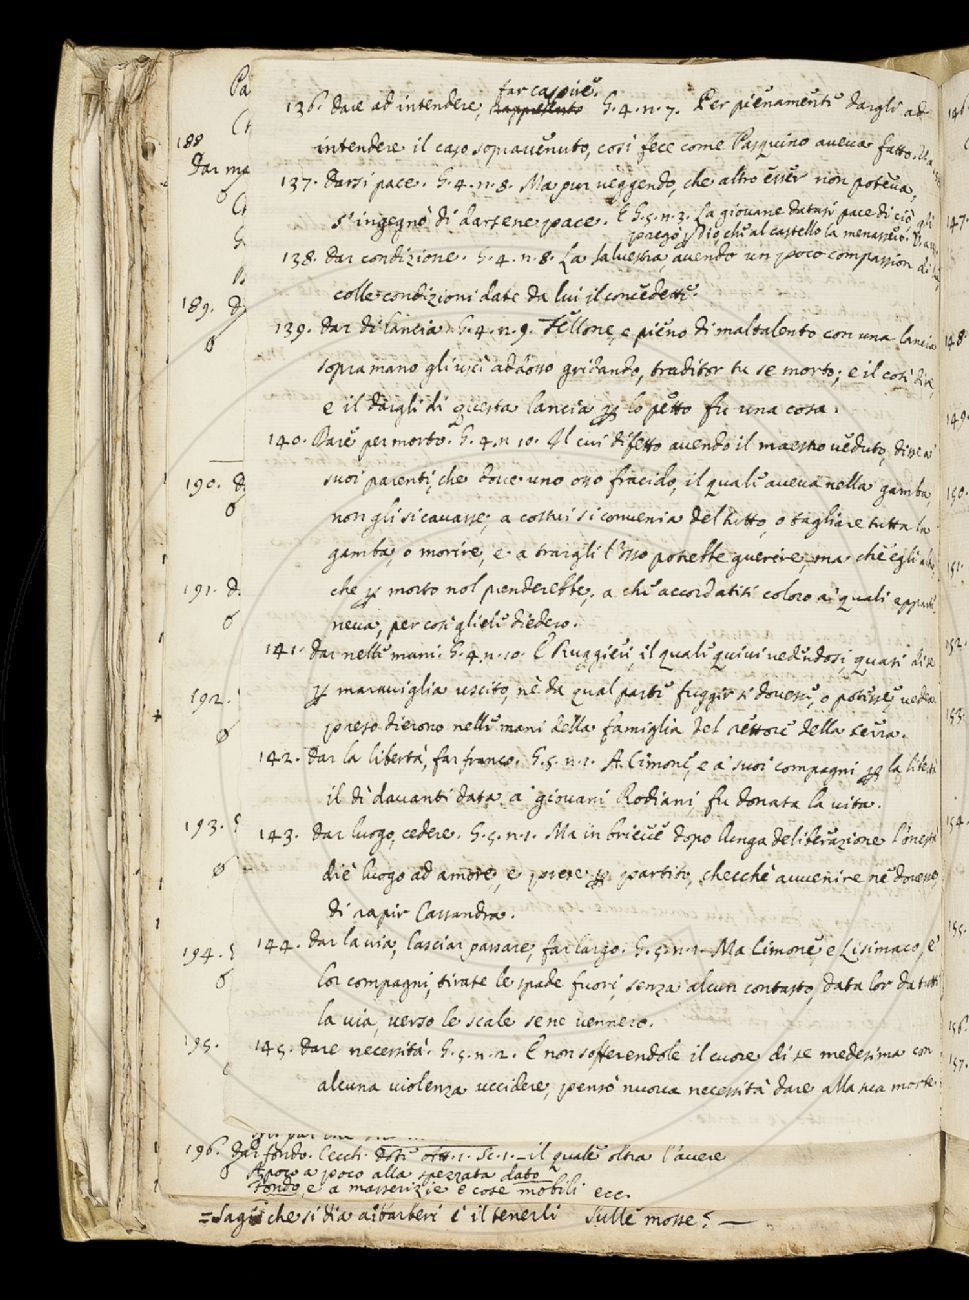 Pa
188
Dar ma
189. d
190. d
191. d
192.
193.
194.
195.
far capire.
136. dare ad intendere, G. 4. n. 7. Per pienamente dargli ad
intendere il caso sopravenuto, così fece come Pasquino aveva fatto.
137. darsi pace. G. 4. n. 8. Ma pur veggendo, che altro esser non poteva,
s'ingegnò di darsene pace. E G. 5. n. 3. La giovane datasi pace di ciò, gli
pregò per dio che al castello la menassero.
138. dar condizione. G. 4. n. 8. La Salvestra, avendo un poco compassion di
colle condizioni date da lui il concedette.
139. dar di lancia. G. 4. n. 9. Fellone, e pieno di maltalento con una lancia
sopra mano gli uscì addosso gridando, traditor tu se morto; e il così dire,
e il dargli di questa lancia per lo petto fu una cosa.
140. Dare per morto. G. 4. n. 10. Il cui difetto avendo il maestro veduto, disse a
suoi parenti, che dove uno osso fracido, il quale aveva nella gamba,
non gli si cavasse, a costui si convenia del tutto, o tagliare tutta la
gamba, o morire, e a trargli l'osso potrebbe guerire, ma che egli altro
che per morto nol prenderebbe, a che accordatisi coloro a quali apparte
neva, per così gliele diedero.
141. dar nelle mani. G. 4. n. 10. E Ruggieri, il quale quivi vedendosi, quasi di se
per maraviglia uscito, nè da qual parte fuggir si dovesse, o potesse, vedea
preso dierono nelle mani della famiglia del rettore della terra.
142. dar la libertà, far franco. G. 5. n. 1. A Cimone, e a' suoi compagni per la libertà
il dì davanti data a' giovani Rodiani, fu donata la vita.
143. dar luogo, cedere. G. 5. n. 1. Ma in brieve dopo lunga deliberazione l'onestà
diè luogo ad amore, e prese per partito, checchè avvenire ne dovesse,
di rapir Cassandra.
144. dar la via, lasciar passare, far largo. G. 5. n. 1. Ma Cimone, e Lisimaco, e
lor compagni, tirate le spade fuori, senza alcun contasto, data lor da tutti
la via, verso le scale se ne vennero.
145. dare necessità. G. 5. n. 2. E non sofferendole il cuore di se medesima con
alcuna violenza uccidere, pensò nuova necessità dare alla sua morte.
196. dar fondo. Cecch. Dote att. 1. Sc. 1. — il quale oltra l'avere
A poco a poco alla spezzata dato
Fondo, e a masserizie e cose mobili ecc.
che si dia a' barberi è il tenerli sulle mosse? —